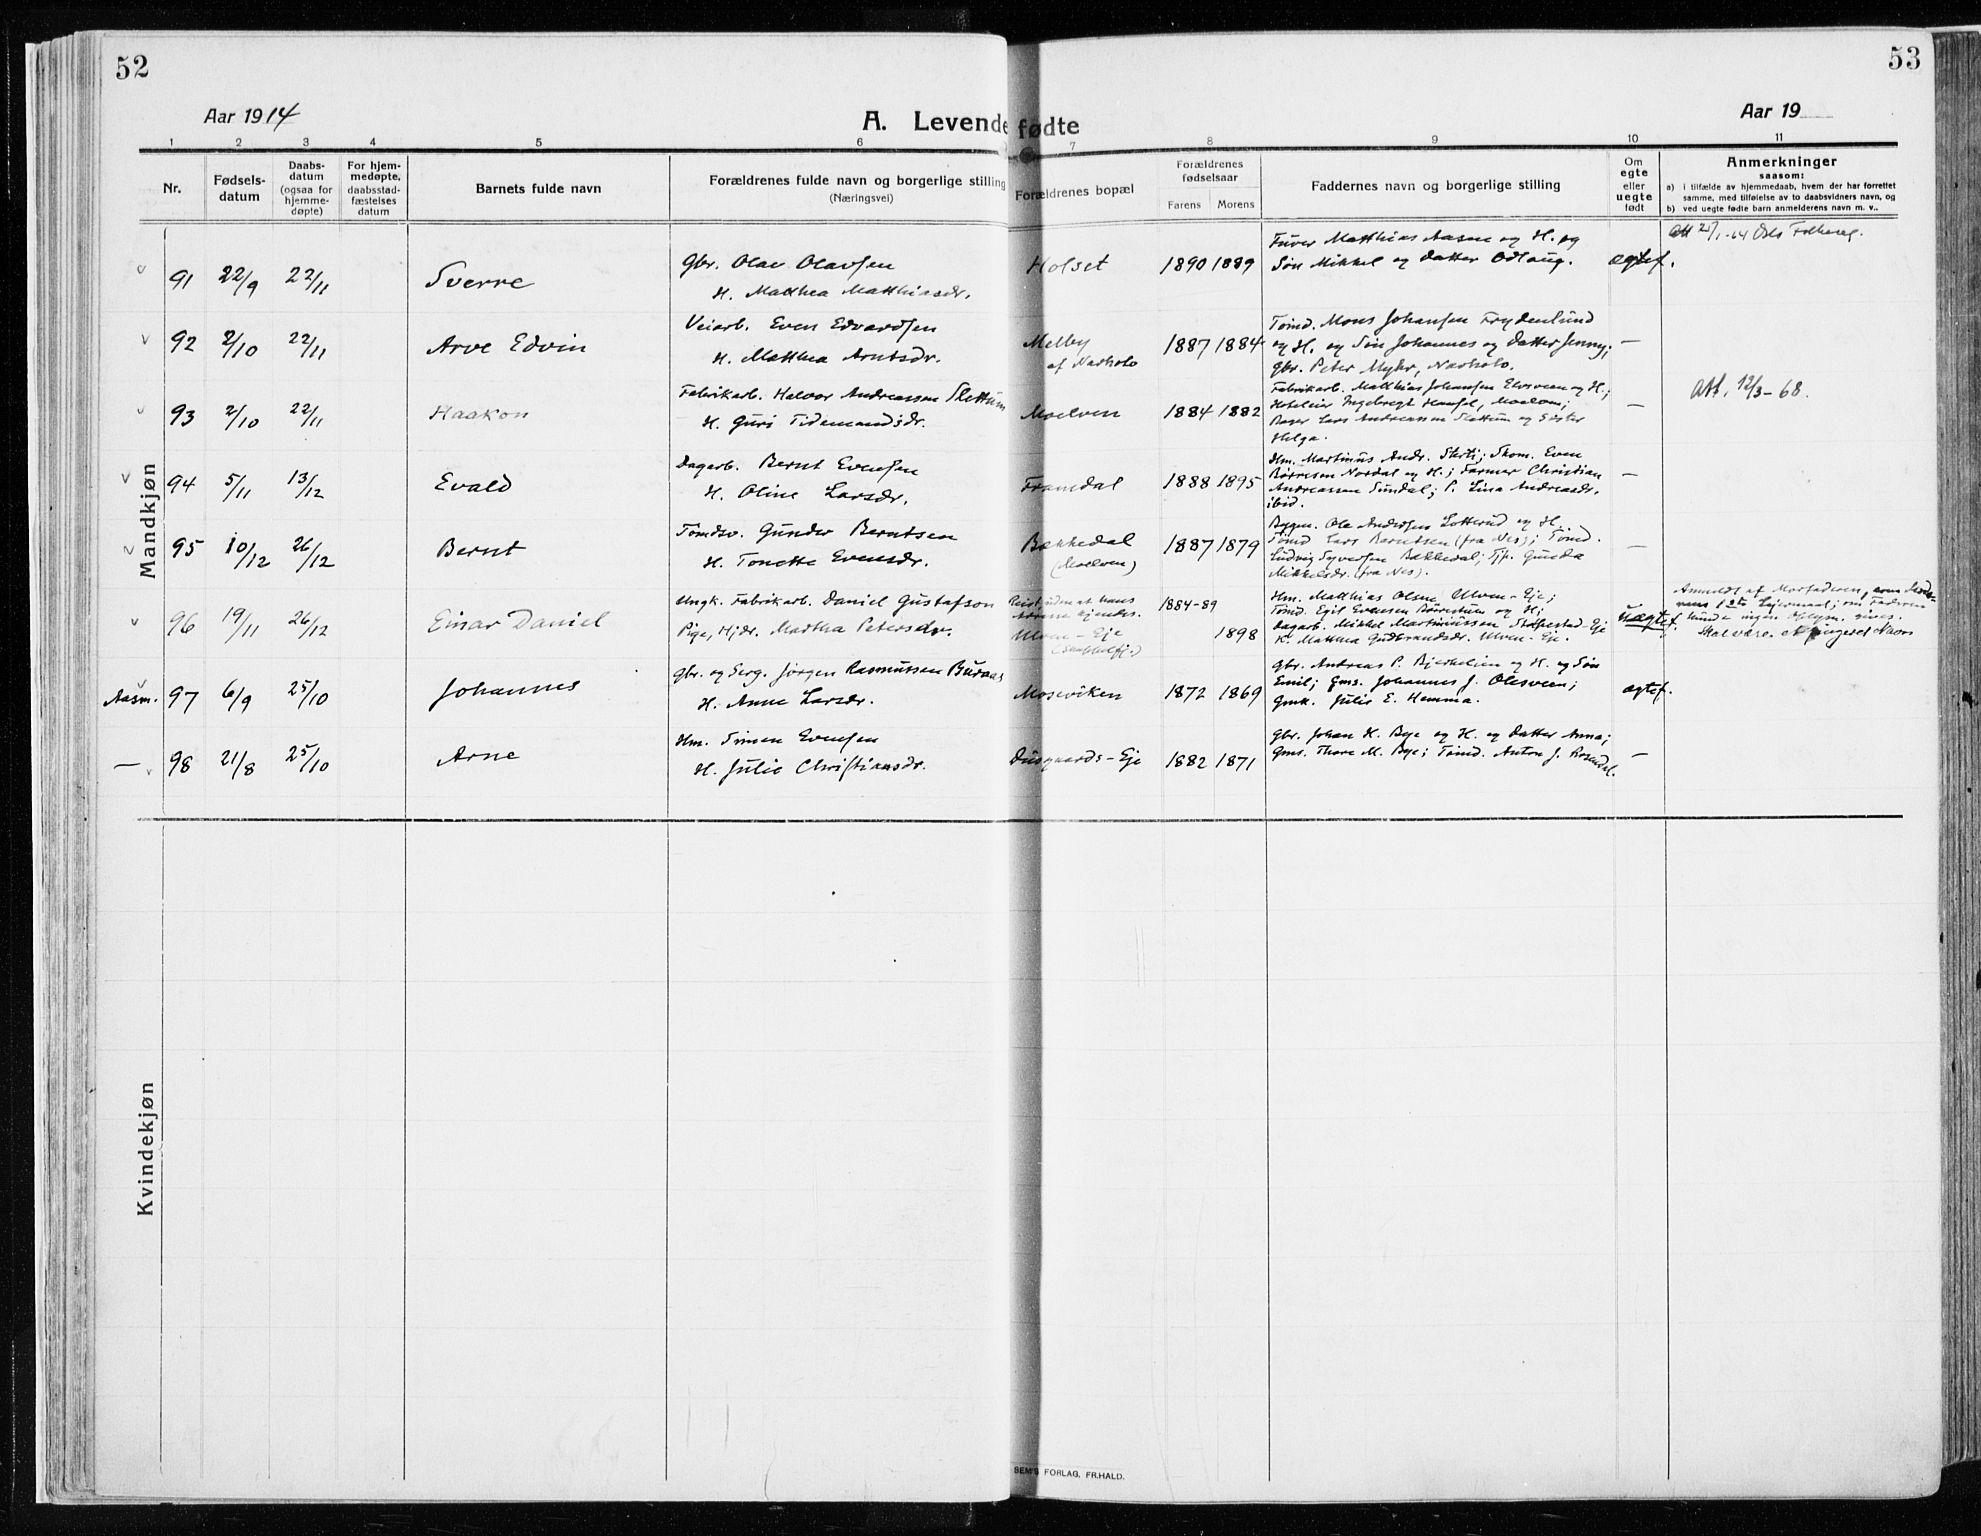 52
53
Aar 1914
A. Levende fødte
Aar 19
1 2 3 4 5 6 7 8 9 10 11
Nr.
Fødsels-
datum
Daabs-
datum
(ogsaa for
hjemme-
døpte)
For hjem-
medøpte,
daabsstad-
fæstelses
datum
Barnets fulde navn
Forældrenes fulde navn og borgerlige stilling
(Næringsvei)
Forældrenes bopæl
Forældrenes
fødselsaar
Farens Morens
Faddernes navn og borgerlige stilling
Om
egte
eller
uegte
født
Anmerkninger
saasom:
a) i tilfælde av hjemmedaab, hvem der har forrettet
samme, med tilføielse av to daabsvidners navn, og
b) ved uegte fødte barn anmelderens navn m. v..
Mandkjøn
91 22/9 22/11 Sverre
Gbr. Olav Olavsen
H. Matthea Matthiasdr.
Holset 1890 1889
Matthias Aasen og H. og
Søn Mikkel og Datter Odlaug.
ægtef.
92 2/10 22/11 Arve Edvin
Veiarb. Even Edvardsen
H. Matthea Arntsdr.
Melby
af Narholo
1887 1884
Tømd. Mons Johansen Frydenlund
og H. og Søn Johannes og Datter Jenny;
Gbr. Peter Myhr, Narholo.
—
93 2/10 22/11 Haakon
Fabrikarb. Halvor Andreassen Slettum
H. Guri Tidemandsdr.
Moelven 1884 1882
Fabrikarb. Matthias Johansen Elvsveen og H;
Hoteleier Ingebregt Hansel, Moelven;
Lars Andreassen Slettum og Søster
Helga.
—
Att. 12/3-68.
94 5/11 13/12 Evald
Dagarb. Bernt Evensen
H. Oline Larsdr.
Framdal 1888 1895
Hm. Martinus Andr. Skom. Even
Børresen Nordal og H.; Farmer Christian
Andreassen Sundal; P. Lina Andreasdr.
ibid.
—
95 10/12 26/12 Bernt
Tømdsv. Gunder Berntsen
H. Tonette Evensdr.
Bækkedal
(Moelven)
1887 1879
Bygm. Ole Andersen Lotterud og H.
Tømd. Lars Berntsen (fra Nes); Tømd.
Ludvig Syversen Bækkedal; Tjp. Gunda
Mikkelsdr. (fra Nes).
—
96 19/11 26/12 Einar Daniel
Ungk. Fabrikarb. Daniel Gustafson
Pige, Hjdr. Martha Petersdr.
Reist, uden at hans
Adresse kjendes.
Ulven-Eje
1884-89
1898
Hm. Matthias Olsen Ulven-Eje;
Tømd. Egil Evensen Børrestuen og H;
Dagarb. Mikkel Martiniussen Stafsestad-Eje
K. Matthea Gudbrandsdr. Ulven-Eje.
uægtef.
Anmeldt af Morfaderen,
Leiermaal; om Faderen
kunde ingen Oplysn. gives.
Skal være
Aasm. 97 6/9 25/10 Johannes
Gbr. og Serg. Jørgen Rasmussen Buraas
H. Anne Larsdr.
Moseviken 1872 1869
Gbr. Andreas P. Bjerkelien og H. og Søn
Emil; Gms. Johannes J. Olesveen;
Gmk. Julie E. Hemma.
ægtef.
— 98 21/8 25/10 Arne
Hm. Simen Evensen
H. Julie Christiansdr.
Dusgaards-Eje 1882 1871
Gbr. Johan H. Bye og H. og Datter Anna;
Gms. Thore M. Bye; Tømd. Anton J. Rosendal.
—
Kvindekjøn
SEM'S FORLAG, FR.HALD.